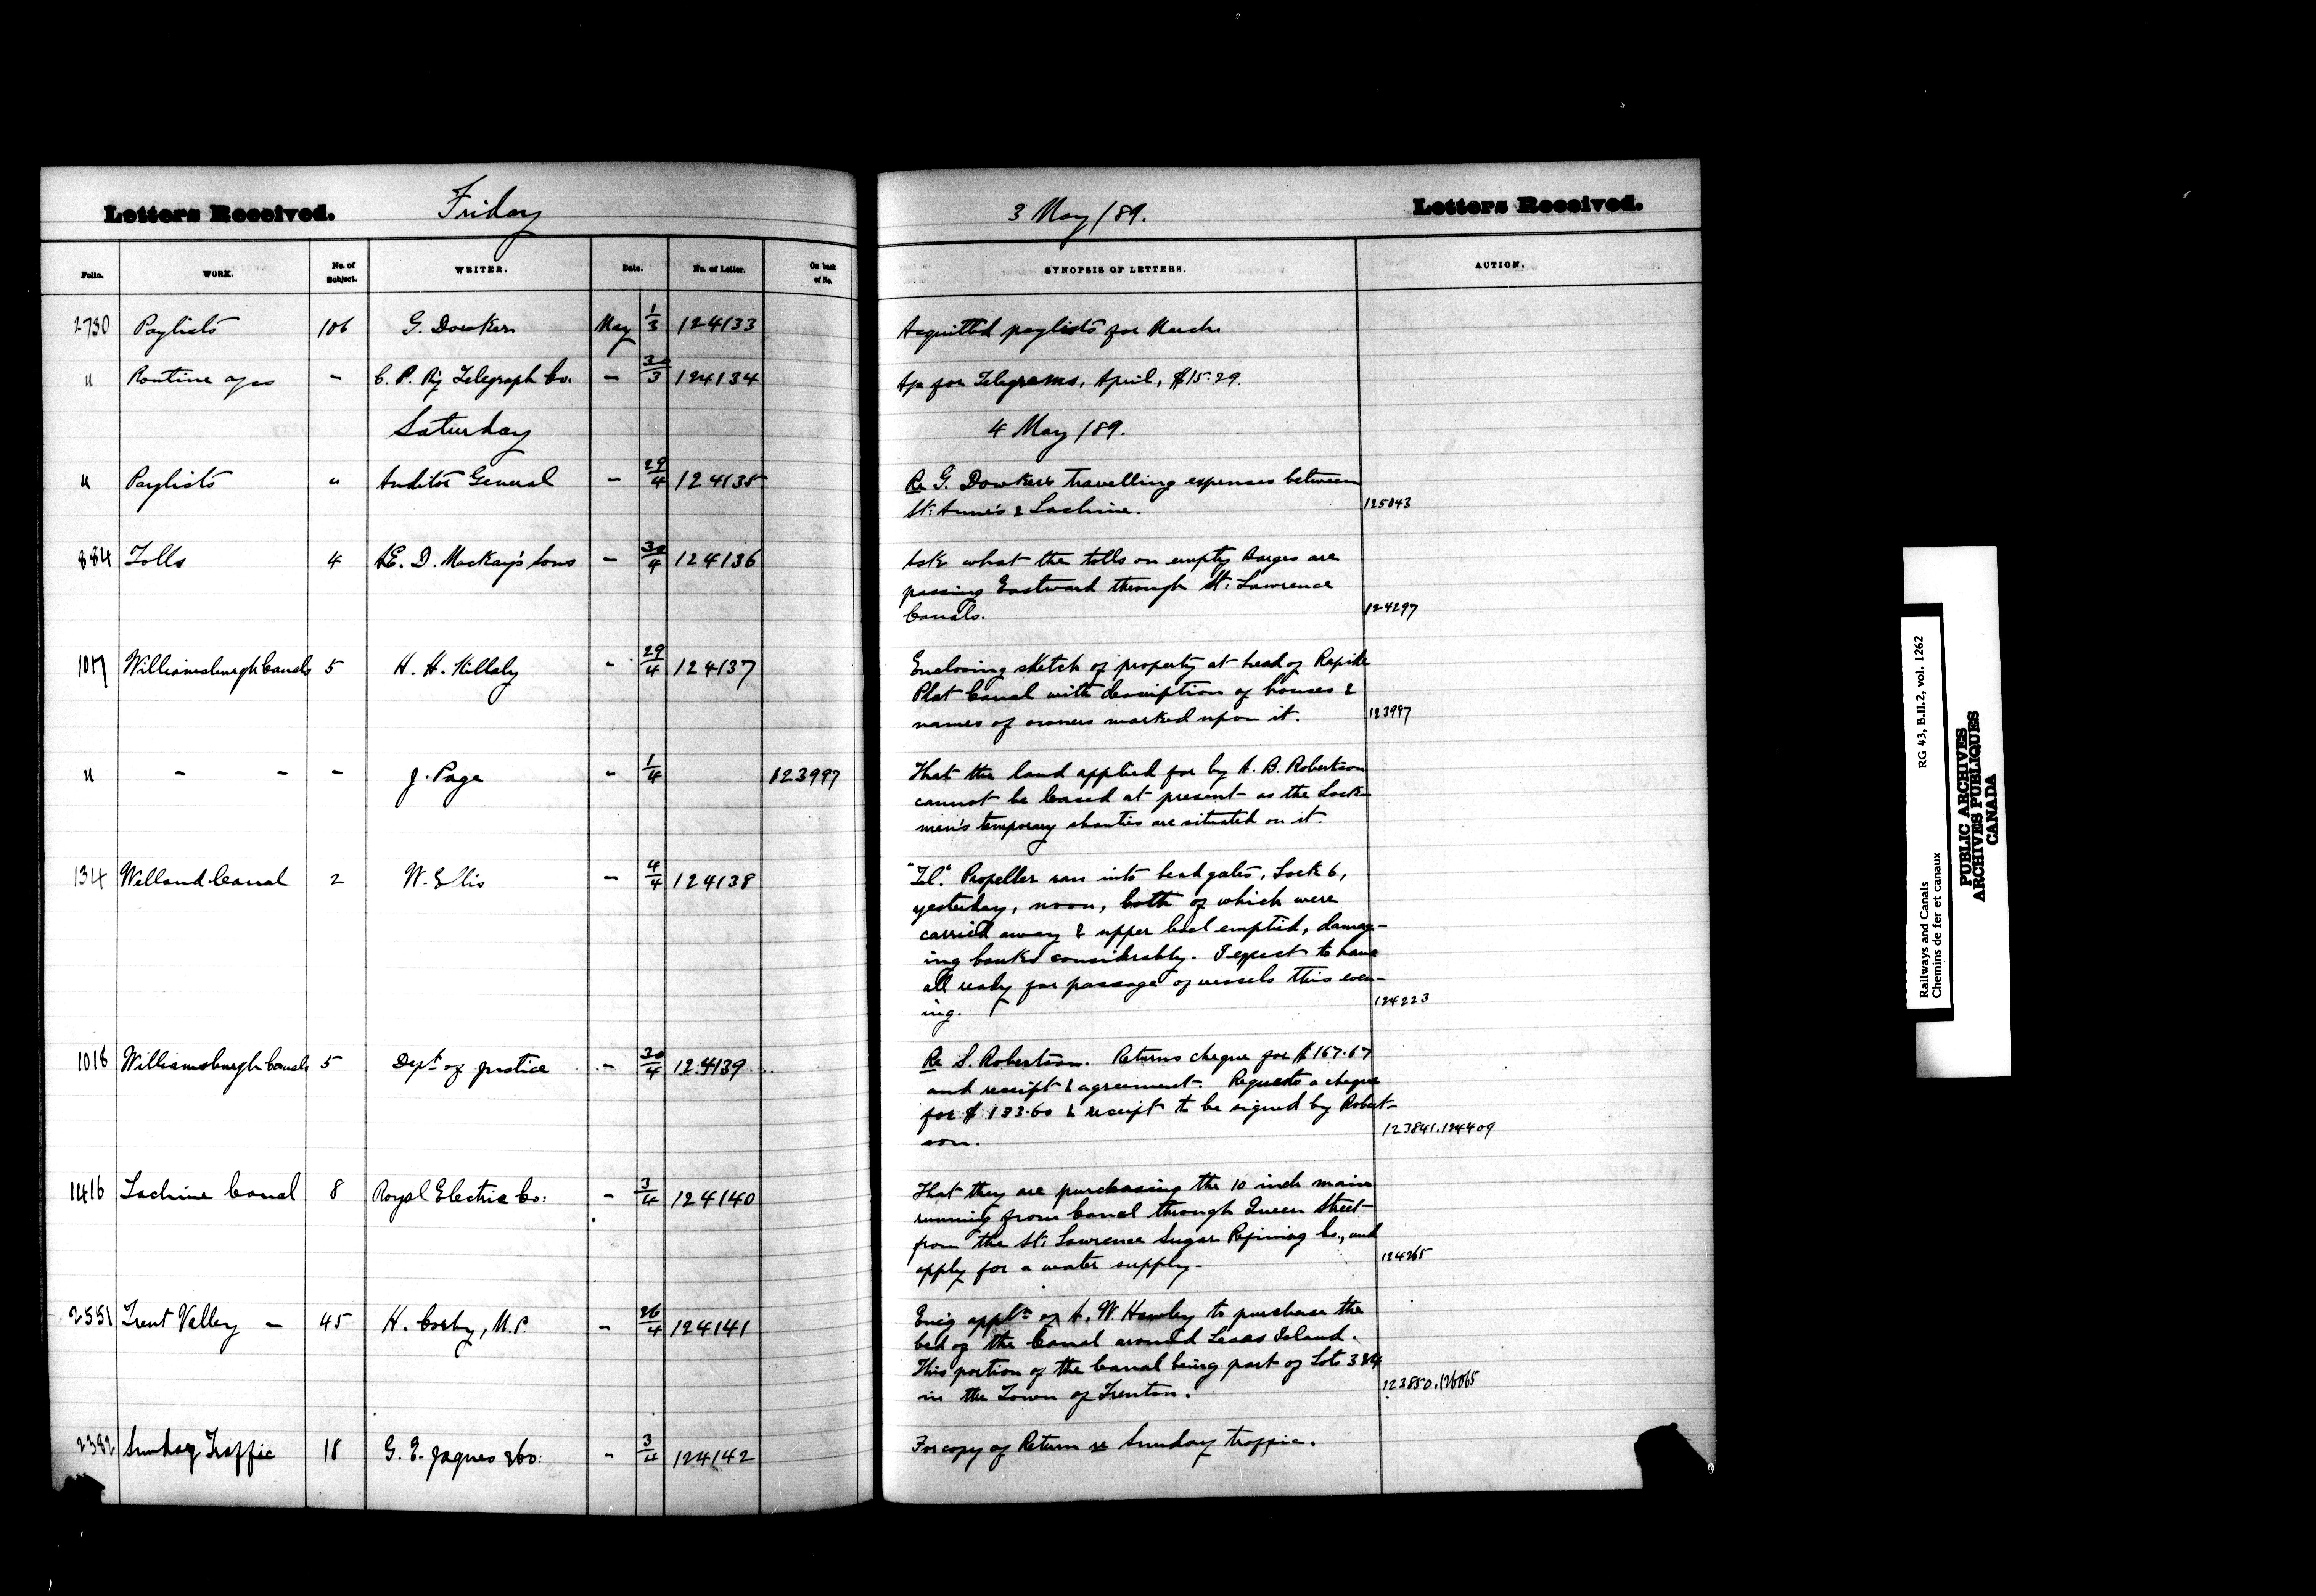 Letters Received. Friday 3 May/89. Letters Received.
Folio. WORK. No. of Subject. WRITER. Date. No. of Letter. On back of No. SYNOPSIS OF LETTERS. ACTION.
2730 Paylists 106 G. Dowker May 1/3 124133 Acquitted paylists for March
" Routine a/cs - C. P. Ry Telegraph Co. - 30/3 124134 A/c for Telegrams, April, $15.29.
Saturday 4 May/89.
" Paylists " Auditor General - 29/4 124135 Re G. Dowker's travelling expenses between
St: Anne's & Lachine. 125043
884 Tolls 4 AE. D. Mackay's Sons - 30/4 124136 Ask what the tolls on empty Barges are
passing Eastward through St: Lawrence
Canals. 124297
1017 Williamsburgh Canals 5 H. H. Killaly " 29/4 124137 Enclosing sketch of property at head of Rapide
Plat Canal with description of houses &
names of owners marked upon it. 123997
" - - - J. Page " 1/4 123997 That the land applied for by A. B. Robertson
cannot be leased at present as the Lock-
men's temporary shanties are situated on it.
134 Welland Canal 2 W. Ellis - 4/4 124138 "Tel." Propeller ran into head gates, Lock 6,
yesterday, noon, both of which were
carried away & upper level emptied, damag-
ing banks considerably. I expect to have
all ready for passage of vessels this even-
ing. 124223
1018 Williamsburgh Canals 5 Dept of Justice - 30/4 124139 Re S. Robertson. Returns cheque for $167.67
and receipt & agreement. Requests a cheque
for $133.60 & receipt to be signed by Robert-
son. 123841.124409
1416 Lachine Canal 8 Royal Electric Co: - 3/4 124140 That they are purchasing the 10 inch main
running from Canal through Queen Street
from the St: Lawrence Sugar Refining Co., and
apply for a water supply. 124265
2551 Trent Valley - 45 H. Corby, M.P. - 26/4 124141 Encg appln of A. W. Hawley to purchase the
bed of the Canal around Lucas Island.
This portion of the Canal being part of Lots 3 & 4
in the Town of Trenton. 123850.126065
2382 Sunday Traffic 18 G. E. Jaques & Co: " 3/4 124142 For copy of Return re Sunday traffic.
Railways and Canals RG 43, B.II.2, vol. 1262
Chemins de fer et canaux
PUBLIC ARCHIVES
ARCHIVES PUBLIQUES
CANADA